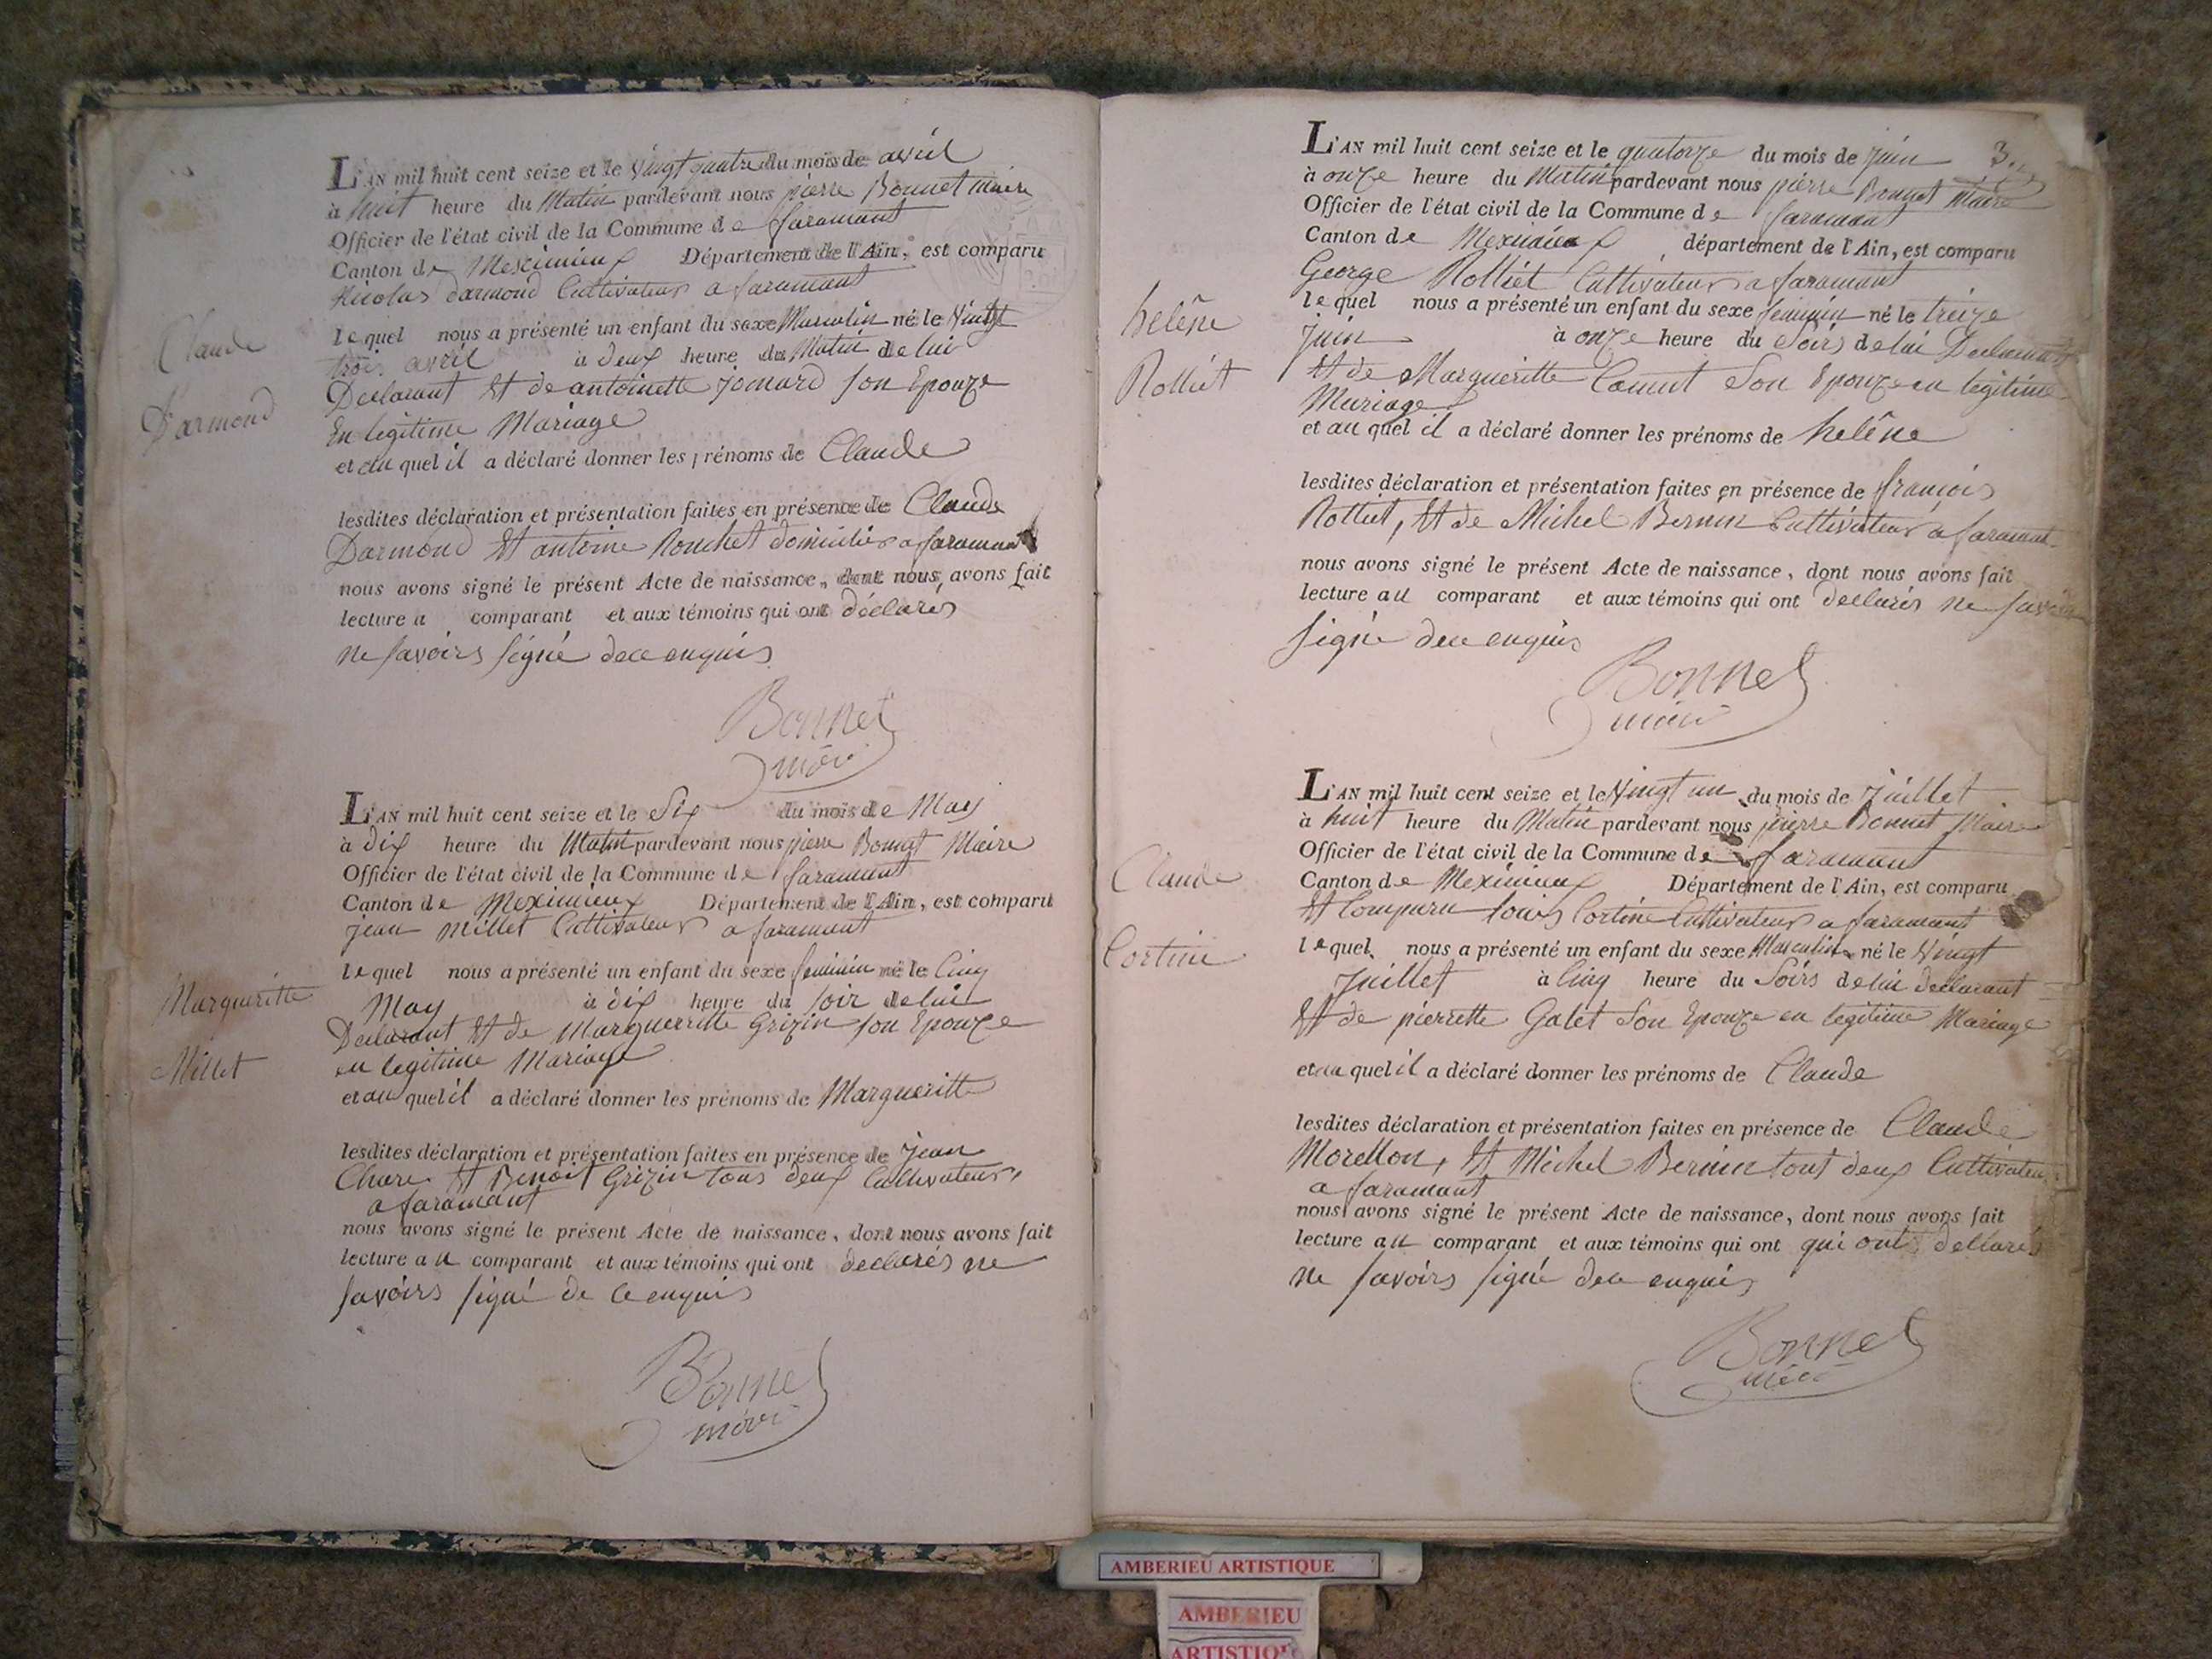 L'AN mil huit cent seize et le Vingt quatre du mois de avril
à huit heure du Matin pardevant nous pierre Bonnet maire
Officier de l'état civil de la Commune de faramant
Canton de Meximieux Département de l'Ain, est comparu
Nicolas Darmond Cultivateur a faramant
lequel nous a présenté un enfant du sexe Masculin né le Vingt
trois avril à deux heure du Matin de lui
Declarant Et de antoinette jomard son Epouze
En legitime Mariage
et au quel il a déclaré donner les prénoms de Claude
lesdites déclaration et présentation faites en présence de Claude
Darmond Et antoine Rouchet domiciliés a faramant
nous avons signé le présent Acte de naissance, dont nous avons fait
lecture a comparant et aux témoins qui ont déclarés
ne savoirs signé de ce enquis
Bonnet
maire
Claude
Darmond
L'AN mil huit cent seize et le Six du mois de May
à dix heure du Matin pardevant nous pierre Bonnet Maire
Officier de l'état civil de la Commune de faramant
Canton de Meximieux Département de l'Ain, est comparu
jean Millet Cultivateur a faramant
lequel nous a présenté un enfant du sexe feminin né le Cinq
May à dix heure du soir de lui
Declarant Et de Marguerritte Grizin son Epouze
en legitime Mariage
et au quel il a déclaré donner les prénoms de Margueritte
lesdites déclaration et présentation faites en présence de jean
Et Benoit Grizin tous deux Cultivateurs
a faramant
nous avons signé le présent Acte de naissance, dont nous avons fait
lecture au comparant et aux témoins qui ont declarés ne
savoirs signé de ce enquis
Bonnet
maire
Margueritte
Millet
3
L'AN mil huit cent seize et le quatorze du mois de juin
à onze heure du Matin pardevant nous pierre Bonnet Maire
Officier de l'état civil de la Commune de faramant
Canton de Meximieux département de l'Ain, est comparu
George Rolliet Cultivateur a faramant
lequel nous a présenté un enfant du sexe feminin né le treize
juin à onze heure du Soirs de lui Declarant
Et de Margueritte Son Epouze en legitime
Mariage
et au quel il a déclaré donner les prénoms de helêne
lesdites déclaration et présentation faites en présence de françois
Rolliet, Et de Michel Bernin Cultivateurs a faramant
nous avons signé le présent Acte de naissance, dont nous avons fait
lecture au comparant et aux témoins qui ont Declarés ne savoir
signé de ce enquis
Bonnet
maire
helêne
Rolliet
L'AN mil huit cent seize et le Vingt un du mois de Juillet
à huit heure du Matin pardevant nous pierre Bonnet Maire
Officier de l'état civil de la Commune de faramant
Canton de Meximieux Département de l'Ain, est comparu
Et Comparu louis Cortine Cultivateur a faramant
lequel nous a présenté un enfant du sexe Masculin né le Vingt
Juillet à Cinq heure du Soirs de lui declarant
Et de pierrette Galet Son Epouze en legitime Mariage
et au quel il a déclaré donner les prénoms de Claude
lesdites déclaration et présentation faites en présence de Claude
Morellon, Et Michel Bernin tout deux Cultivateurs
a faramant
nous avons signé le présent Acte de naissance, dont nous avons fait
lecture au comparant et aux témoins qui ont qui ont declarés
ne savoirs signé de ce enquis
Bonnet
maire
Claude
Cortine
AMBERIEU ARTISTIQUE
AMBERIEU